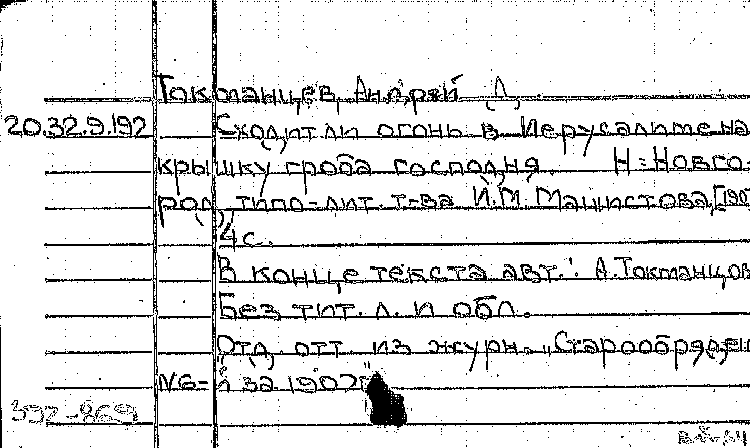 Токманцев, Андрей Л.
20.32.9.192 Сходит ли огонь в Иерусалиме на
крышку гроба господня. Н=Новго-
род, типо-лит. т-ва И.М. Машистова, [190
4 с.
В конце текста авт.: А. Токманцов
Без тит. л. и обл.
Отд. отт. из журн. "Старообрядец"
№6= за 1907
392-869